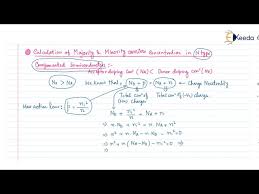 Keeda
Calculation of Majority & Minority carrier Concentration in N type
Compensated Semiconductor :-
Acceptor doping conc (Na) < Donor doping conc (Nd)
Nd > Na
We know that, Nd + p = Na + n ← Charge Neutrality
Total concⁿ of (+ve) charge
Total concⁿ of (-ve) charge
Mass action law:
p = ni²/n
Nd + ni²/n = Na + n
⇒ n Nd + ni² = n Na + n²
⇒ n² + n Na - n Nd - ni² = 0
⇒ n² + n (Na - Nd) - ni² = 0 ⇒